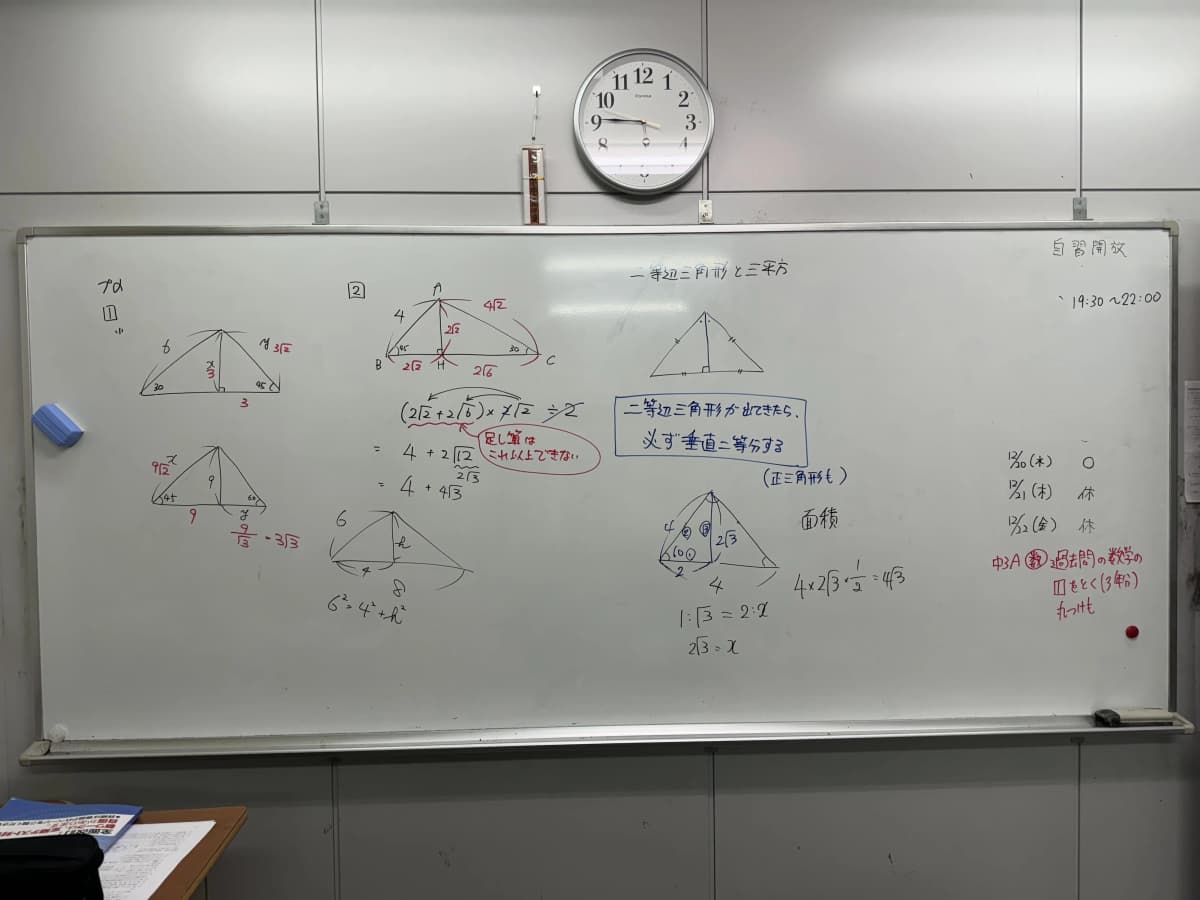 12
11
1
10
2
9
3
8
4
プα
1
(1)
6
30
x
3
y 3√2
45
3
9√2 x
45
9
60
9
y
9/√3 = 3√3
2
A
4
4√2
2√2
45
30
B
2√2
H
2√6
C
(2√2 + 2√6) × √2 ÷ 2
足し算は
これ以上できない
= 4 + 2√12
2√3
= 4 + 4√3
6
h
4
8
6² = 4² + h²
二等辺三角形と三平方
二等辺三角形が出てきたら、
必ず垂直二等分する
(正三角形も)
4
② √3
60 ①
2√3
2
4
面積
4 × 2√3 × 1/2 = 4√3
1:√3 = 2:x
2√3 = x
自習開放
19:30~22:00
12/20(水) ○
12/21(木) 休
12/22(金) 休
中3A 数 過去問の数学の
をとく(3年分)
丸つけも